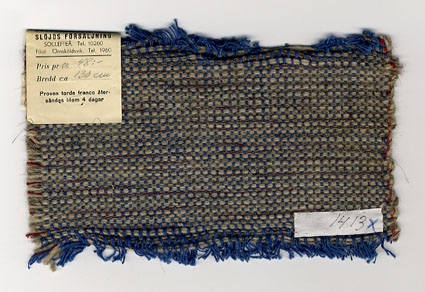 SLÖJDS FÖRSÄLJNING
SOLLEFTEÅ. Tel. 10260
Filial Örnsköldsvik. Tel. 1960
Pris pr m 48:-
Bredd ca 130 cm
Proven torde franco åter-
sändas inom 4 dagar
1413x